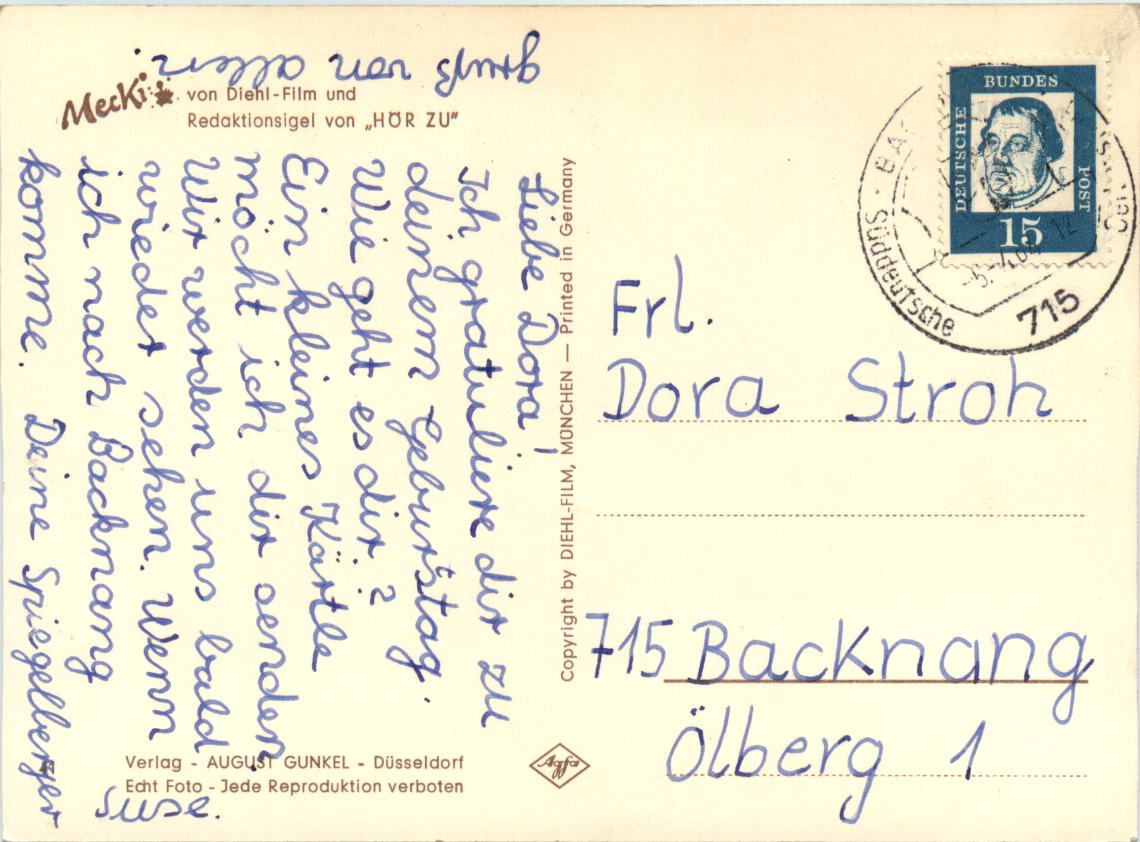 Mecki
von Diehl-Film und
Redaktionsigel von „HÖR ZU"
Liebe Dora!
Ich gratuliere dir zu
deinem Geburtstag.
Wie geht es dir?
Ein kleines Kärtle
möcht ich dir senden.
Wir werden uns bald
wieder sehen. Wenn
ich nach Backnang
komme. Deine Spiegelberger
Suse.
gruß von allen.
Copyright by DIEHL-FILM, MÜNCHEN — Printed in Germany
Verlag - AUGUST GUNKEL - Düsseldorf
Echt Foto - Jede Reproduktion verboten
Agfa
DEUTSCHE
BUNDES
POST
15
Süddeutsche
715
Frl.
Dora Stroh
715 Backnang
Ölberg 1